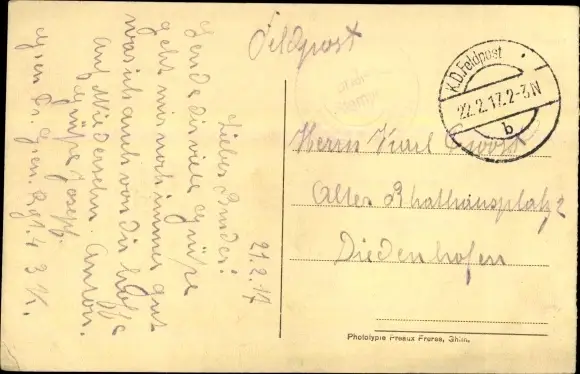 Feldpost
K.D. Feldpost
22.2.17. 2-3N
b
Herrn Karl
Altes Rhathausplatz 2
Diedenhofen
21.2.17
Lieber Bruder!
Sende dir viele Grüße
geht mir noch immer gut
was ich auch von dir hoffe
auf Wiedersehn. Anton.
Grüße Joseph.
4 3 K.
Phototypie Preaux Freres, Ghlin.